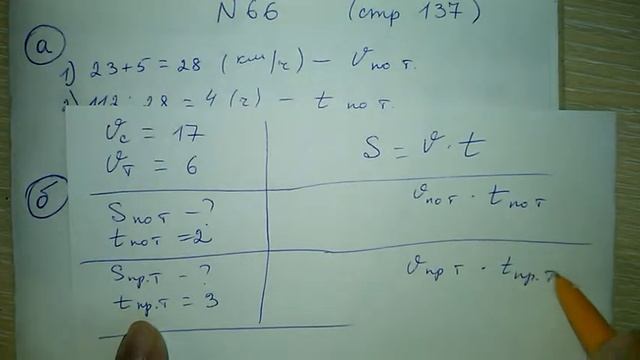 N 66 (стр 137)
а
1) 23+5=28 (км/ч) – υ по т.
2) 112:28=4 (ч) – t по т.
υс = 17
υт = 6
S = υ · t
б
S по т – ?
t по т = 2
υ по т · t по т
S пр. т – ?
t пр. т = 3
υ пр т · t пр. т